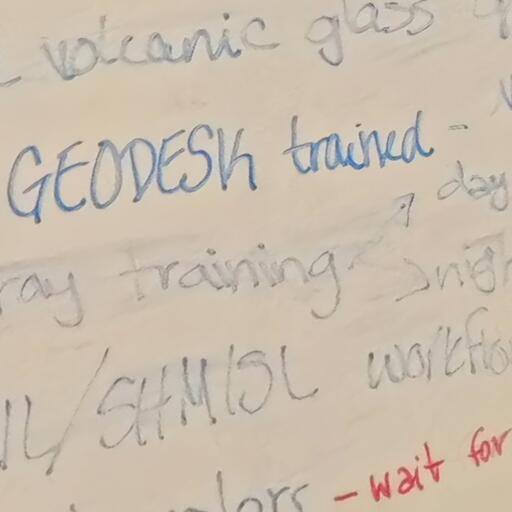 - volcanic glass
GEODESK trained -
day
ray training
SHMISL workflo
- wait for